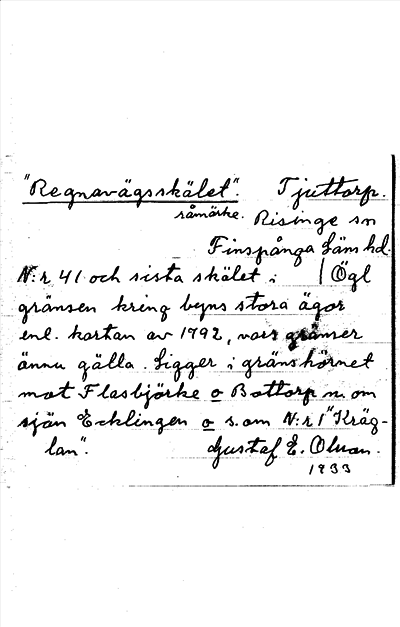 "Regnavägsskälet". Tjuttorp.
råmärke. Risinge sn
Finspånga läns hd.
N:r 41 och sista skälet i | Ögl
gränsen kring byns stora ägor
enl. kartan av 1792, vars gränser
ännu gälla. Ligger i gränshörnet
mot Flasbjörke o Bottorp n. om
sjön Ecklingen o s. om N:r 1 "Kräg-
lan".
Gustaf E. Olsson.
1933